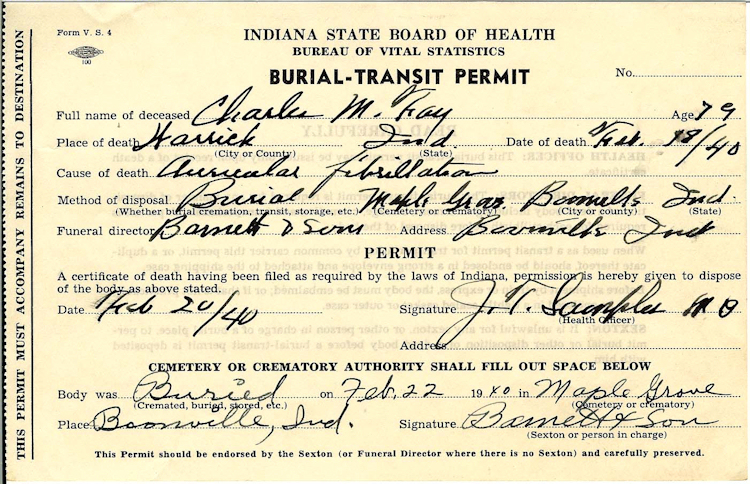 Form V. S. 4
100
INDIANA STATE BOARD OF HEALTH
BUREAU OF VITAL STATISTICS
BURIAL-TRANSIT PERMIT
No.
Full name of deceased Charles M. Fay Age 79
Place of death Warrick Ind. Date of death Feb. 18/40
(City or County) (State)
Cause of death Auricular fibrillation
Method of disposal Burial Maple Grov Boonville Ind.
(Whether burial cremation, transit, storage, etc.) (Cemetery or crematory) (City or county) (State)
Funeral director Barnett & Sons Address Boonville Ind
PERMIT
A certificate of death having been filed as required by the laws of Indiana, permission is hereby given to dispose
of the body as above stated.
Date Feb 20/40 Signature J. T. Samples M D
(Health Officer)
Address
CEMETERY OR CREMATORY AUTHORITY SHALL FILL OUT SPACE BELOW
Body was Buried on Feb. 22 19 40 in Maple Grove
(Cremated, buried, stored, etc.) (Cemetery or crematory)
Place Boonville, Ind. Signature Barnett & Son
(Sexton or person in charge)
This Permit should be endorsed by the Sexton (or Funeral Director where there is no Sexton) and carefully preserved.
THIS PERMIT MUST ACCOMPANY REMAINS TO DESTINATION